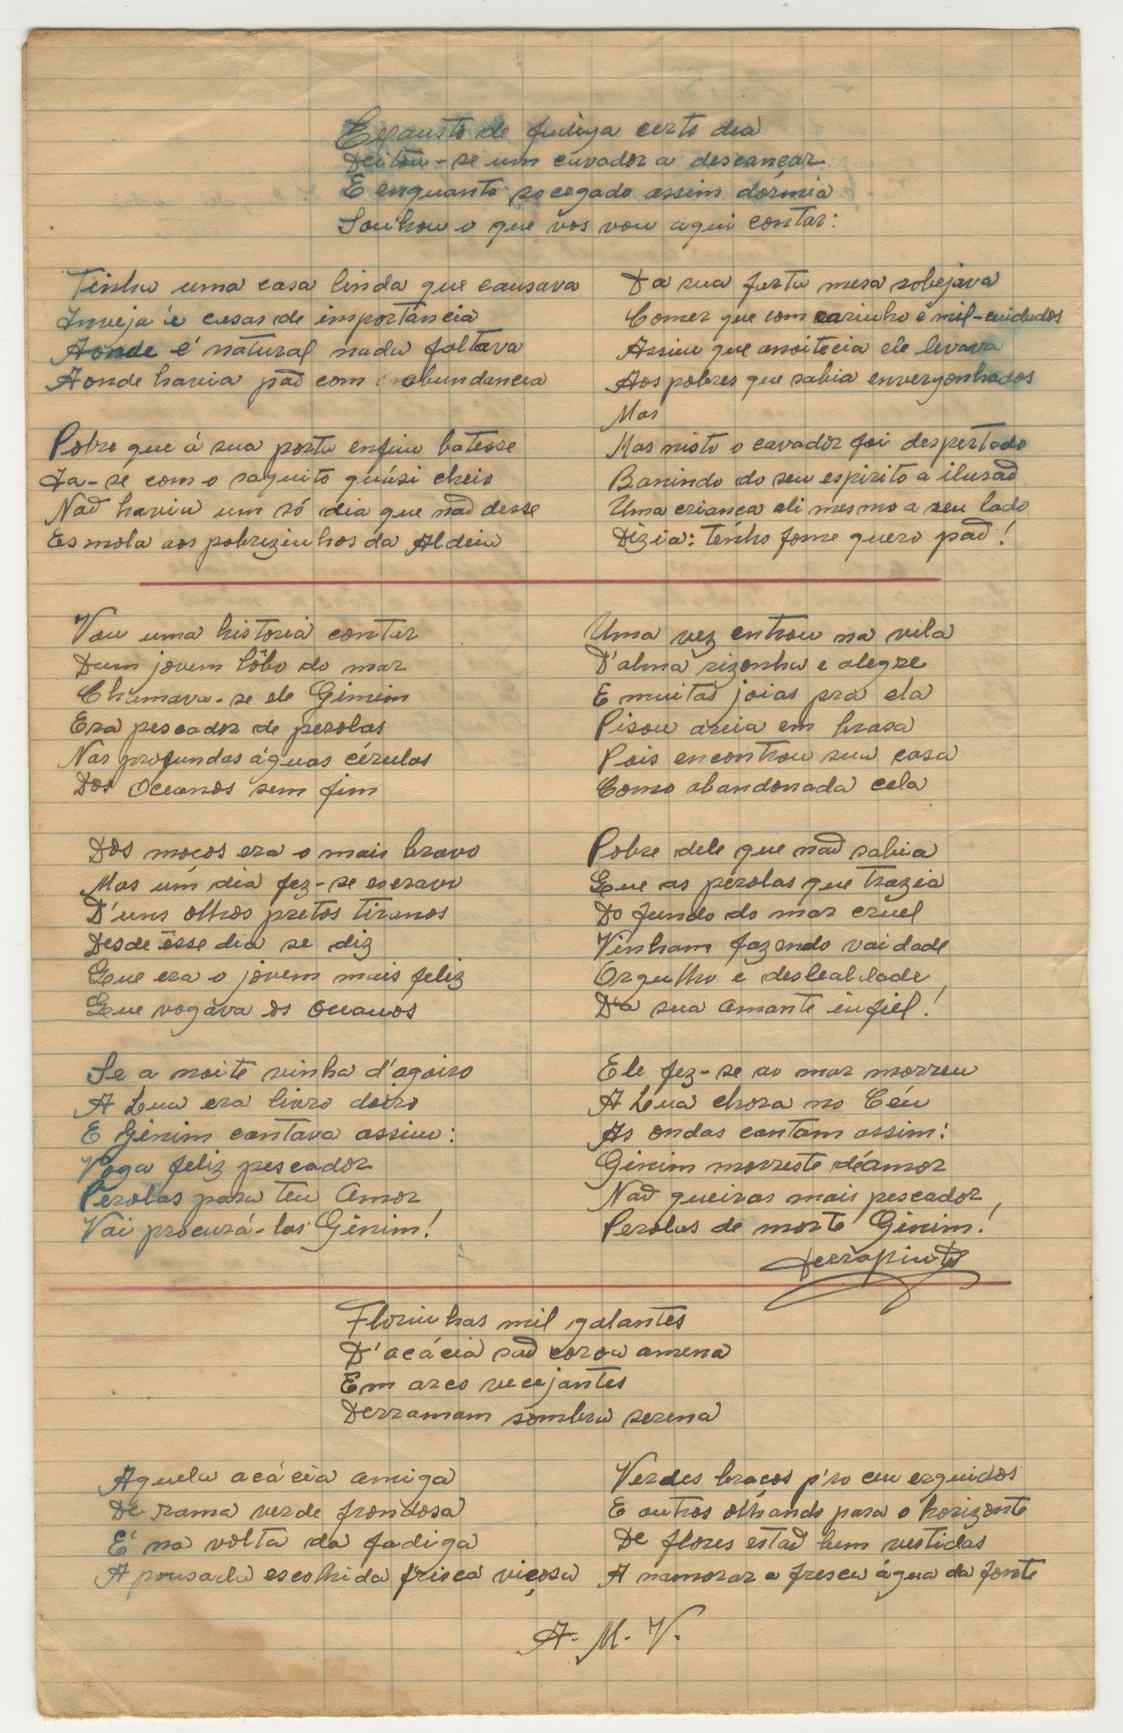 Exausto de fadiga certo dia
Deitou-se um cavador a descançar
E enquanto socegado assim dórmia
Sonhou o que vos vou aqui contar:
Tinha uma casa linda que causava
Inveja ás casas de importáncia
Aonde é natural nada faltava
Aonde havia pão com abundancia
Pobre que á sua porta enfim batesse
Ia-se com o saquito quási cheio
Não havia um só dia que não desse
Esmola aos pobrezinhos da Aldeia
Da sua farta mesa sobejava
Comer que com carinho e mil-cuidados
Assim que anoitecia ele levava
Aos pobres que sabia envergonhados
Mas
Mas nisto o cavador foi despertado
Banindo do seu espirito a ilusão
Uma criança ali mesmo a seu lado
Dizia: tenho fome quero pão!
Vou uma historia contar
Dum jovem lôbo do mar
Chamava-se ele Ginim
Era pescador de perolas
Nas profundas águas cérulas
Dos Oceanos sem fim
Dos moços era o mais bravo
Mas um dia fez-se escravo
D'uns olhos pretos tiranos
Desde êsse dia se diz
Que era o jovem mais feliz
Que vogáva os oceanos
Se a noite vinha d'agoiro
A Lua era livro doiro
E Ginim cantava assim:
Voga feliz pescador
Perolas para teu Amor
Vai procurá-las Ginim!
Uma vez entrou na vila
D'alma rizonha e alegre
E muitas joias pra ela
Pisou areia em brasa
Pois encontrou sua casa
Como abandonada cela
Pobre dele que não sabia
Que as pérolas que trazia
Do fundo do mar cruel
Vinham fazendo vaidade
Orgulho e deslealdade
Da sua amante infiel!
Ele fez-se ao mar morreu
A Lua chora no Céu
As ondas cantam assim:
Ginim morreste de amor
Não queiras mais pescador
Perolas de morte Ginim!
Florinhas mil galantes
D'acácia são corôa amena
Em arco vecejantes
Derramam sombra serena
Aquela acácia amiga
De rama verde frondosa
E' na volta da fadiga
A pousada escolhida frisca viçosa
Verdes braços p'ro ceu erguidos
E outros olhando para o horizonte
De flores estão bem vestidas
A namorar a fresca água da fonte
A. M. V.